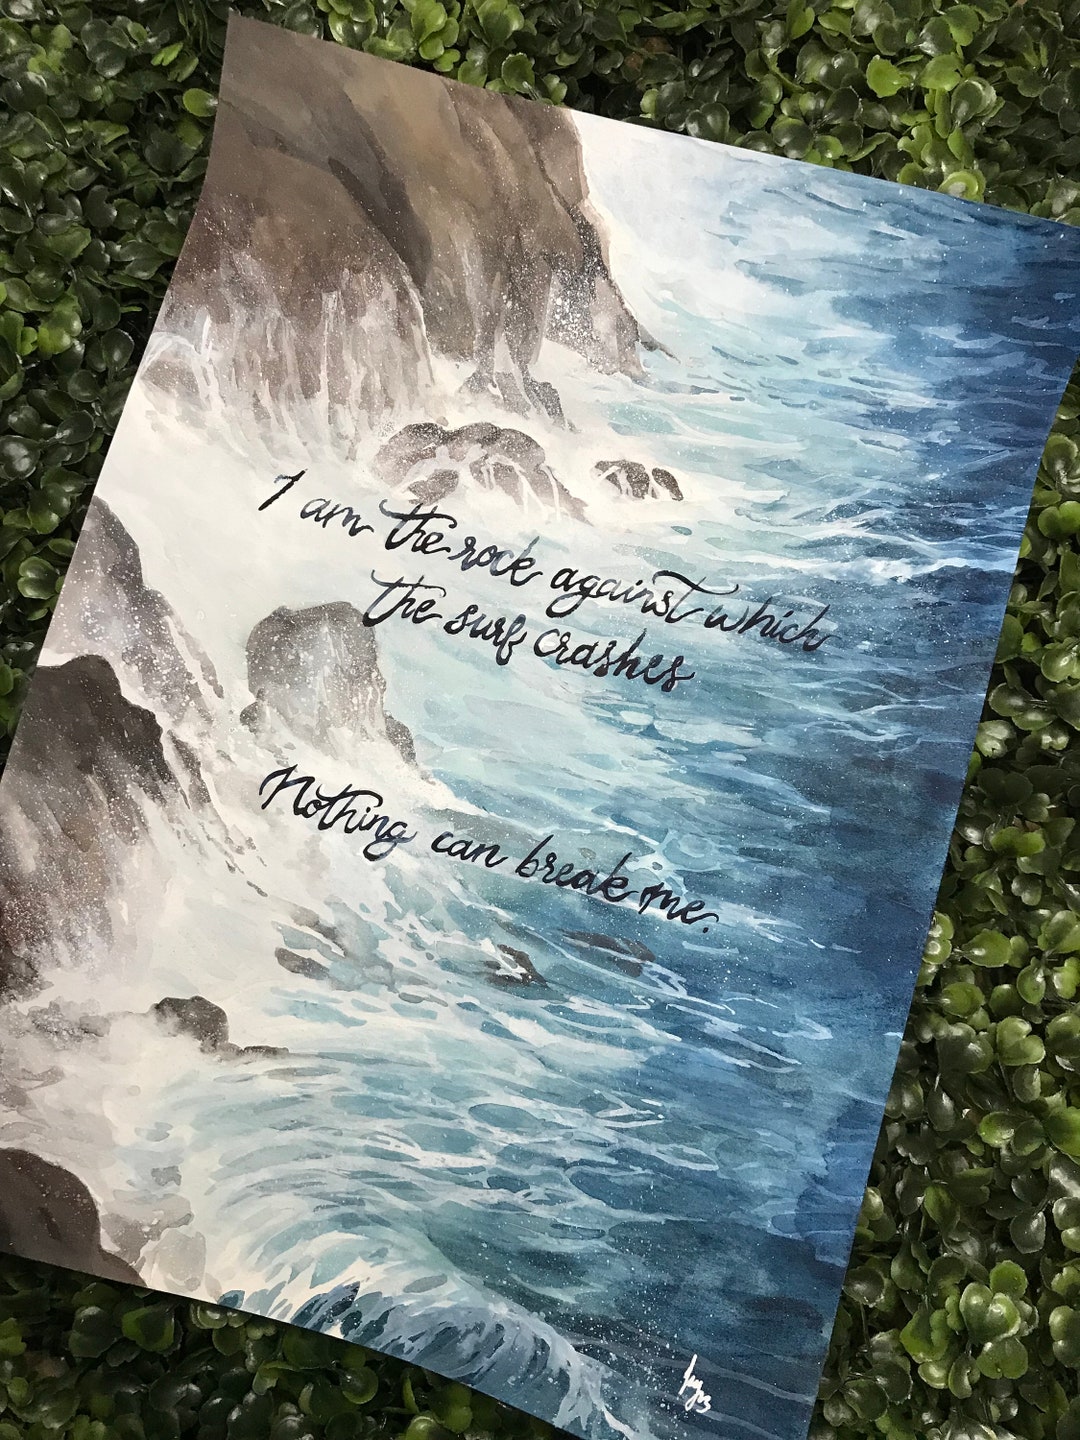 I am the rock against which
the surf crashes
Nothing can break me.